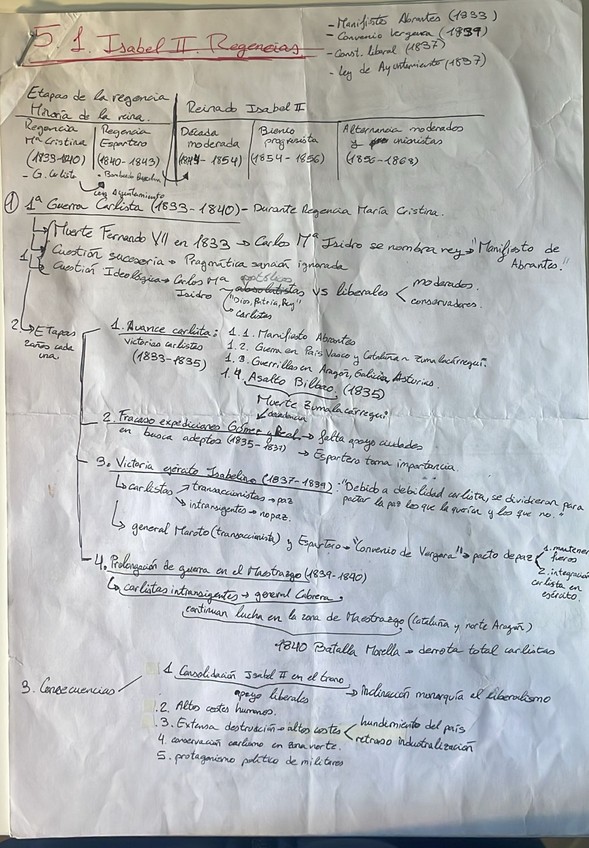 5.1. Isabel II. Regencias
- Manifiesto Abrantes (1833)
- Convenio Vergara (1839)
- Const. liberal (1837)
- Ley de Ayuntamiento (1837)
Etapas de la regencia
Minoría de la reina.
Reinado Isabel II
Regencia Mª Cristina (1833-1840)
- G. Carlista
Regencia Espartero (1840-1843)
Ley Ayuntamiento
Década moderada (1844-1854)
Bienio progresista (1854-1856)
Alternancia moderados y unionistas (1856-1868)
1 1ª Guerra Carlista (1833-1840) - Durante Regencia María Cristina.
1 Muerte Fernando VII en 1833 → Carlos Mª Isidro se nombra rey → "Manifiesto de Abrantes."
Cuestión sucesoria → Pragmática sanción ignorada
Cuestión Ideológica → Carlos Mª Isidro absolutistas vs liberales < moderados. conservadores.
("Dios, Patria, Rey"
carlistas
2 Etapas
2 años cada una.
1. Avance carlista: victorias carlistas (1833-1835)
1.1. Manifiesto Abrantes
1.2. Guerra en País Vasco y Cataluña → Zumalacárregui.
1.3. Guerrillas en Aragón, Galicia, Asturias.
1.4. Asalto Bilbao. (1835)
Muerte Zumalacárregui
2. Fracaso expediciones Gómez y Real → falta apoyo ciudades
en busca adeptos (1835-1837) → Espartero toma importancia.
3. Victoria ejército Isabelino (1837-1839): "Debido a debilidad carlista, se dividieran para
pactar la paz los que la querían y los que no."
carlistas → transaccionistas → paz
intransigentes → no paz.
general Maroto (transaccionista) y Espartero → "Convenio de Vergara" → pacto de paz < 1. mantener fueros
2. integración carlista en ejército.
4. Prolongación de guerra en el Maestrazgo (1839-1840)
carlistas intransigentes → general Cabrera.
continuan lucha en la zona de Maestrazgo (Cataluña y norte Aragón)
1840 Batalla Morella → derrota total carlistas
3. Consecuencias
1. Consolidación Isabel II en el trono
apoyo liberales → inclinación monarquía el liberalismo
2. Altos costes humanos.
3. Extensa destrucción → altos costes < hundimiento del país
retraso industralización
4. conservación carlismo en zona norte.
5. protagonismo político de militares